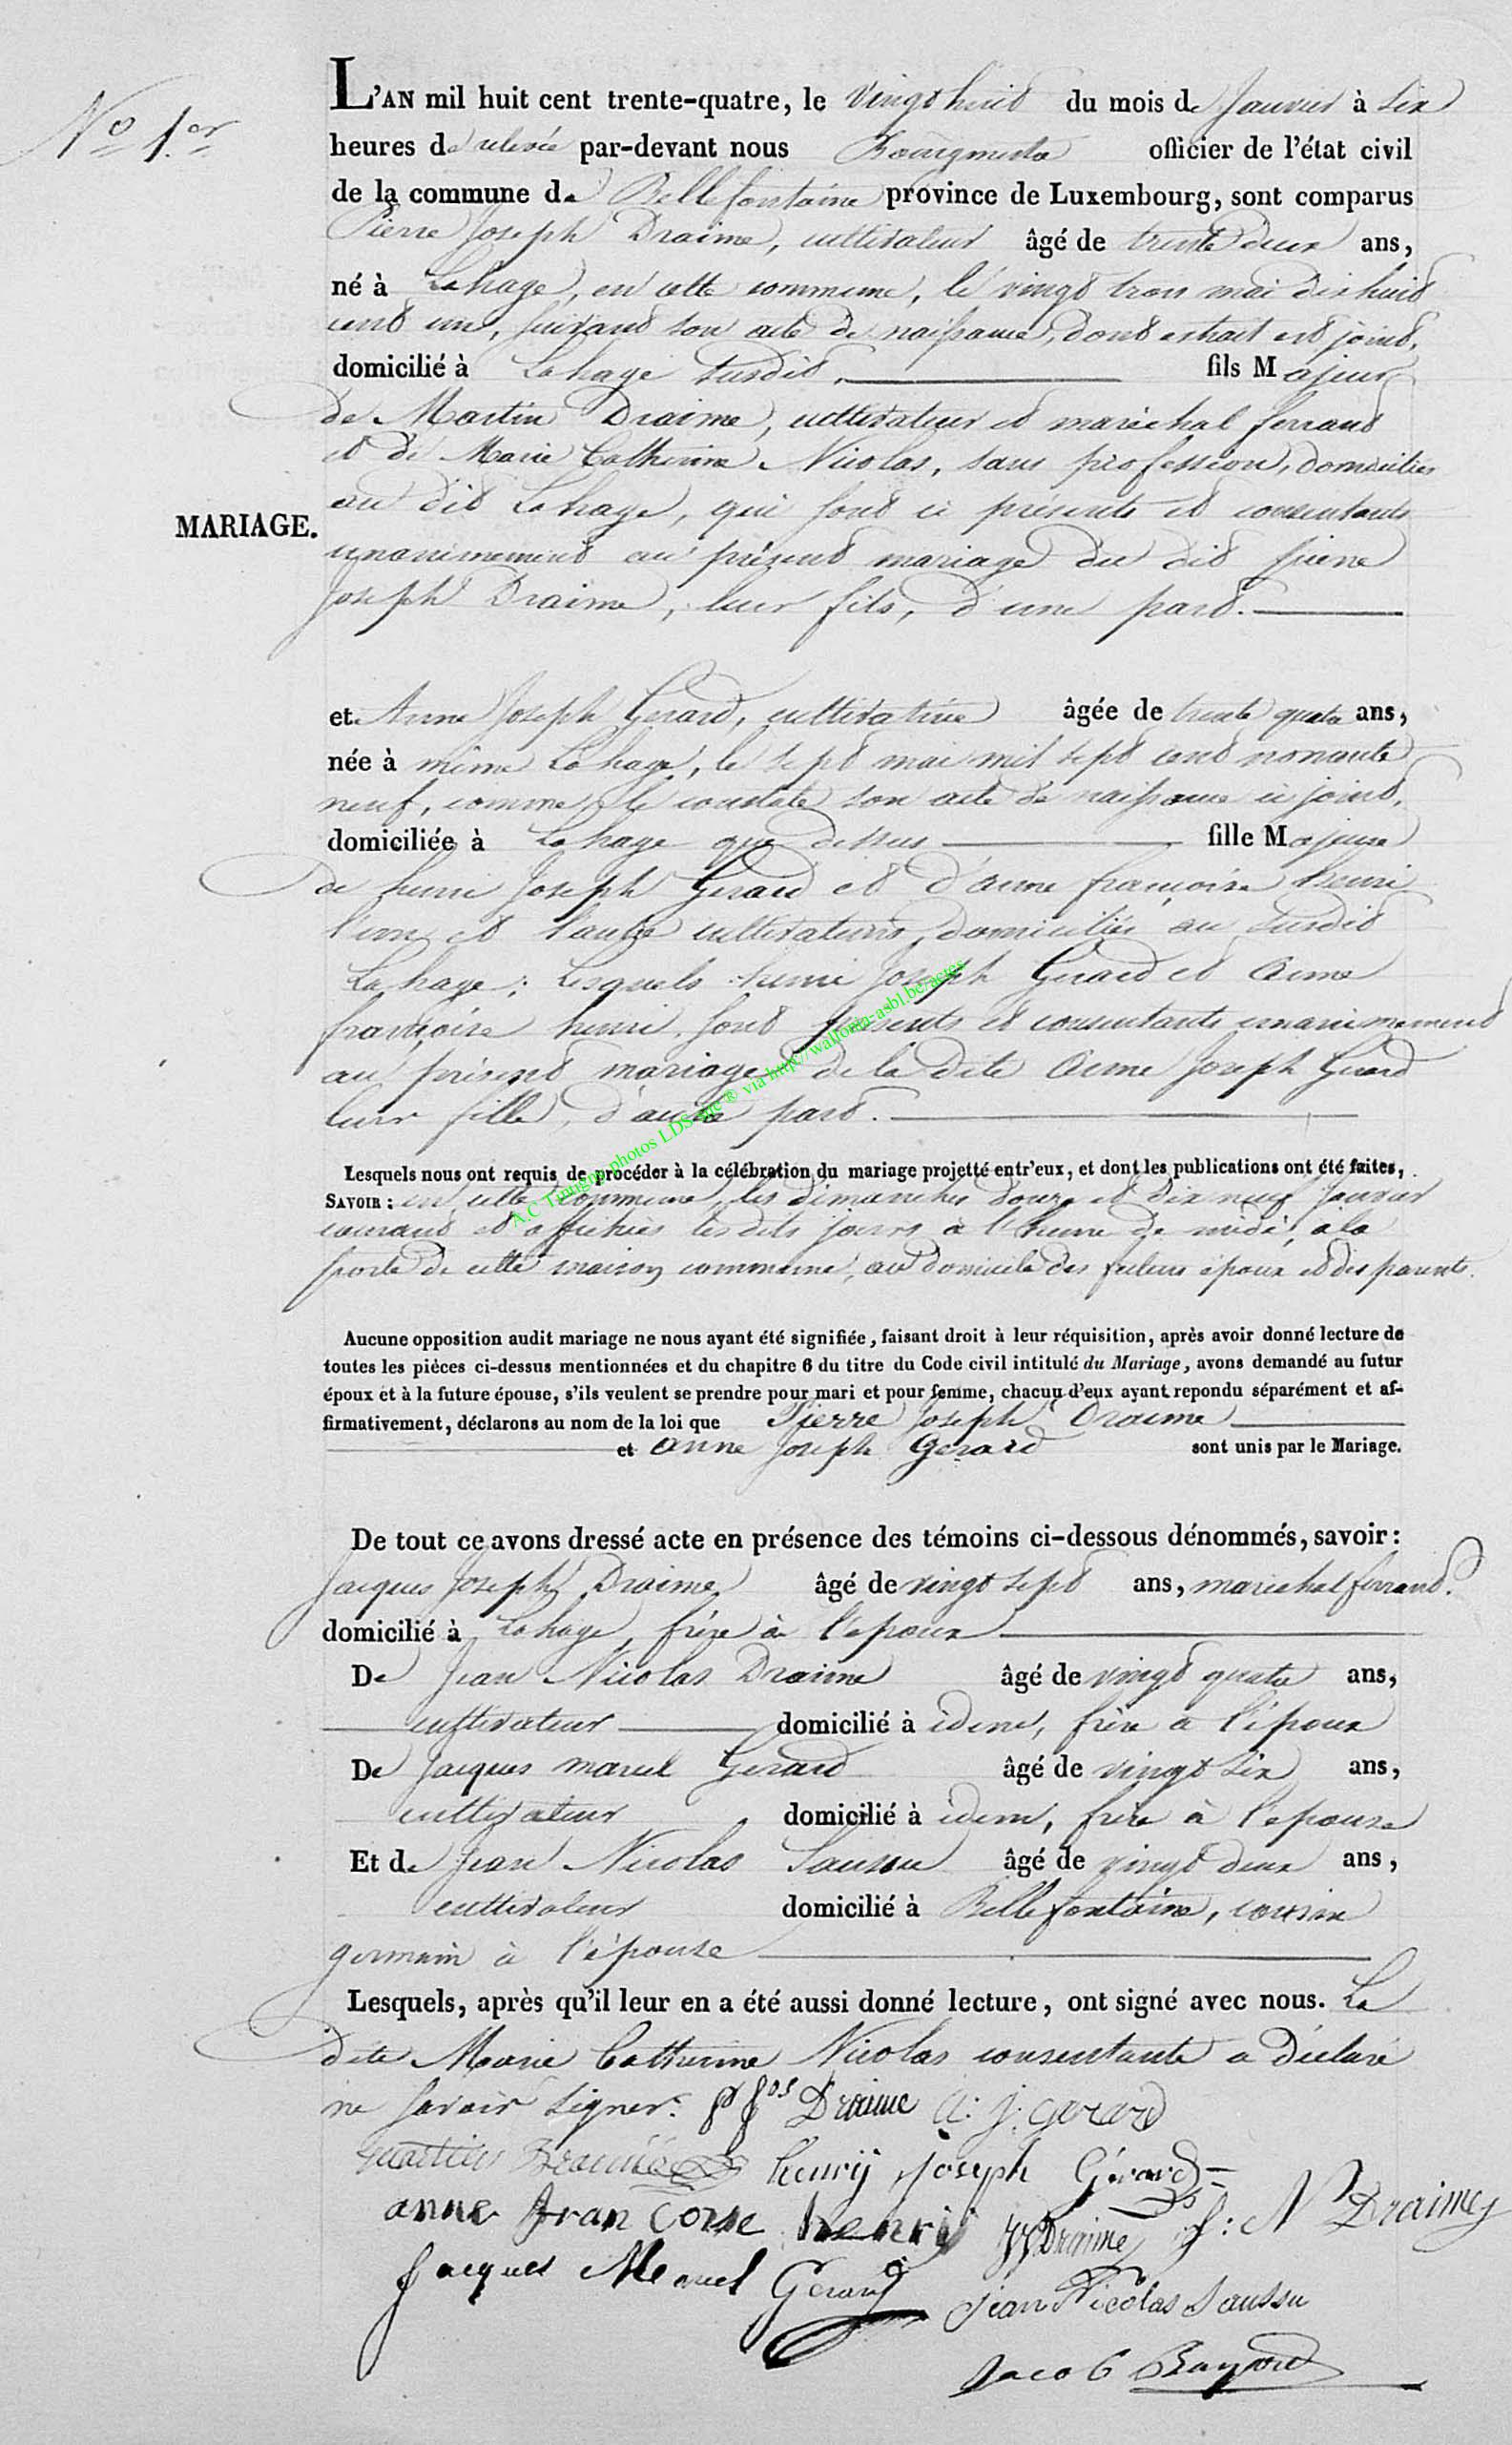 N° 1.er
L'AN mil huit cent trente-quatre, le vingt huit du mois de Janvier à six
heures de relevée par-devant nous Bourgmestre officier de l'état civil
de la commune de Bellefontaine province de Luxembourg, sont comparus
Pierre Joseph Draime, cultivateur âgé de trente deux ans,
né à Lahage, en cette commune, le vingt trois mai dix huit
cent un, suivant son acte de naissance, dont extrait est joint,
domicilié à Lahage susdit, fils Majeur
de Martin Draime, cultivateur et maréchal ferrant
et de Marie Catherine Nicolas, sans profession, domiciliés
au dit Lahage, qui sont ci présents et consentants
MARIAGE.
unanimement au présent mariage du dit pierre
Joseph Draime, leur fils, d'une part.
et Anne Joseph Gerard, cultivatrice âgée de trente quatre ans,
née à même Lahage, le sept mai mil sept cent nonante
neuf, comme le constate son acte de naissance ci joint,
domiciliée à Lahage que dessus fille Majeure
de henri Joseph Gerard et d'anne françoise henri
l'un et l'autre cultivateurs, domiciliés au susdit
Lahage; Lesquels henri Joseph Gerard et Anne
françoise henri sont présents et consentants unanimement
au présent mariage de la dite Anne Joseph Gerard
leur fille, d'autre part.
A.C Tintigny photos LDS-sue ® via http://wallonia-asbl.be/actes
Lesquels nous ont requis de procéder à la célébration du mariage projetté entr'eux, et dont les publications ont été faites,
SAVOIR: en cette commune, les dimanches douze et dix neuf Janvier
courant et affichées les dits jours à l'heure de midi, à la
porte de cette maison commune, au domicile des futurs époux et des parents.
Aucune opposition audit mariage ne nous ayant été signifiée, faisant droit à leur réquisition, après avoir donné lecture de
toutes les pièces ci-dessus mentionnées et du chapitre 6 du titre du Code civil intitulé du Mariage, avons demandé au futur
époux et à la future épouse, s'ils veulent se prendre pour mari et pour femme, chacuu d'eux ayant repondu séparément et af-
firmativement, déclarons au nom de la loi que Pierre Joseph Draime
et anne Joseph Gerard sont unis par le Mariage.
De tout ce avons dressé acte en présence des témoins ci-dessous dénommés, savoir:
Jacques Joseph Draime âgé de vingt sept ans, marechal ferrant.
domicilié à Lahage, frère à l'époux
De Jean Nicolas Draime âgé de vingt quatre ans,
cultivateur domicilié à idem, frère à l'époux
De Jacques marcel Gerard âgé de vingt six ans,
cultivateur domicilié à idem, frère à l'epouse
Et de Jean Nicolas Saussu âgé de vingt deux ans,
cultivateur domicilié à Bellefontaine, cousin
germain à l'épouse
Lesquels, après qu'il leur en a été aussi donné lecture, ont signé avec nous. La
dite Marie Catherine Nicolas consentante a déclaré
ne savoir signer. p jos Draime a: j: gerard
Martin Draime henrij joseph Gérard
anne francoise henrij JJDraime j: N Draime
Jacques Marcel Gerard jean Nicolas Saussu
Jacob